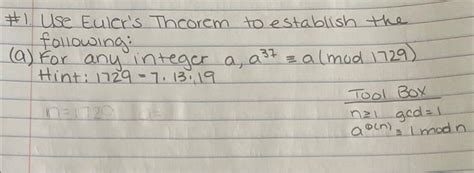 #1 Use Euler's Theorem to establish the
following:
(a) For any integer a, a³⁷ ≡ a (mod 1729)
Hint: 1729 = 7·13·19
Tool Box
n≥1 gcd=1
a^Φ(n) ≡ 1 mod n
n=1729